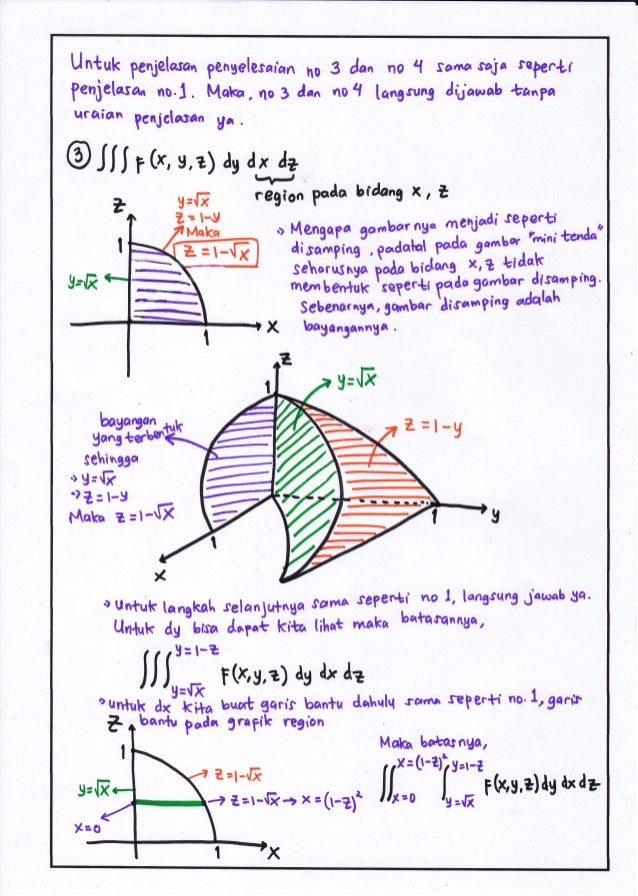 Untuk penjelasan penyelesaian no 3 dan no 4 sama saja seperti
penjelasan no.1. Maka, no 3 dan no 4 langsung dijawab tanpa
uraian penjelasan ya.
③ ∭ F(x, y, z) dy dx dz
region pada bidang x, z
z
y=√x
z=1-y
Maka
z=1-√x
1
y=√x
1
x
» Mengapa gambarnya menjadi seperti
disamping, padatal pada gambar "mini tenda"
seharusnya pada bidang x, z tidak
membentuk seperti pada gambar disamping.
Sebenarnya, gambar disamping adalah
bayangannya.
z
1
y=√x
z=1-y
bayangan
yang terbentuk
sehingga
» y=√x
» z=1-y
Maka z=1-√x
1
x
1
y
» Untuk langkah selanjutnya sama seperti no 1, langsung jawab ya.
Untuk dy bisa dapat kita lihat maka batasannya,
∭ y=√x y=1-z F(x,y,z) dy dx dz
» untuk dx kita buat garis bantu dahulu sama seperti no.1, garis
bantu pada grafik region
z
1
z=1-√x
y=√x
z=1-√x → x=(1-z)²
x=0
1
x
Maka batasnya,
∬ x=0 x=(1-z)² ∫ y=√x y=1-z F(x,y,z) dy dx dz